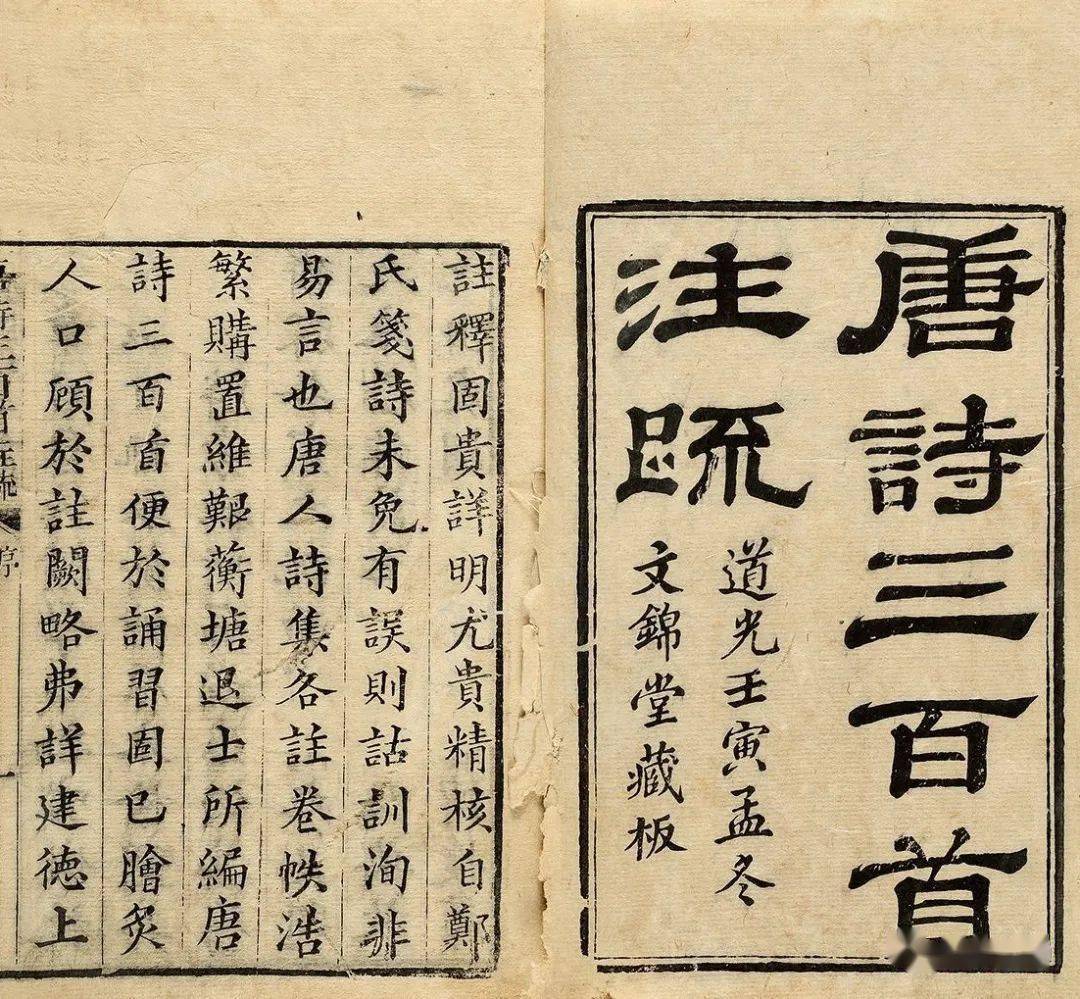 唐詩三百首
注疏
道光壬寅孟冬
文錦堂藏板
註釋固貴詳明尤貴精核自鄭
氏箋詩未免有誤則詁訓洵非
易言也唐人詩集各註卷帙浩
繁購置維艱蘅塘退士所編唐
詩三百首便於誦習固已膾炙
人口顧於註闕略弗詳建德上
唐詩三百首注疏 序 一